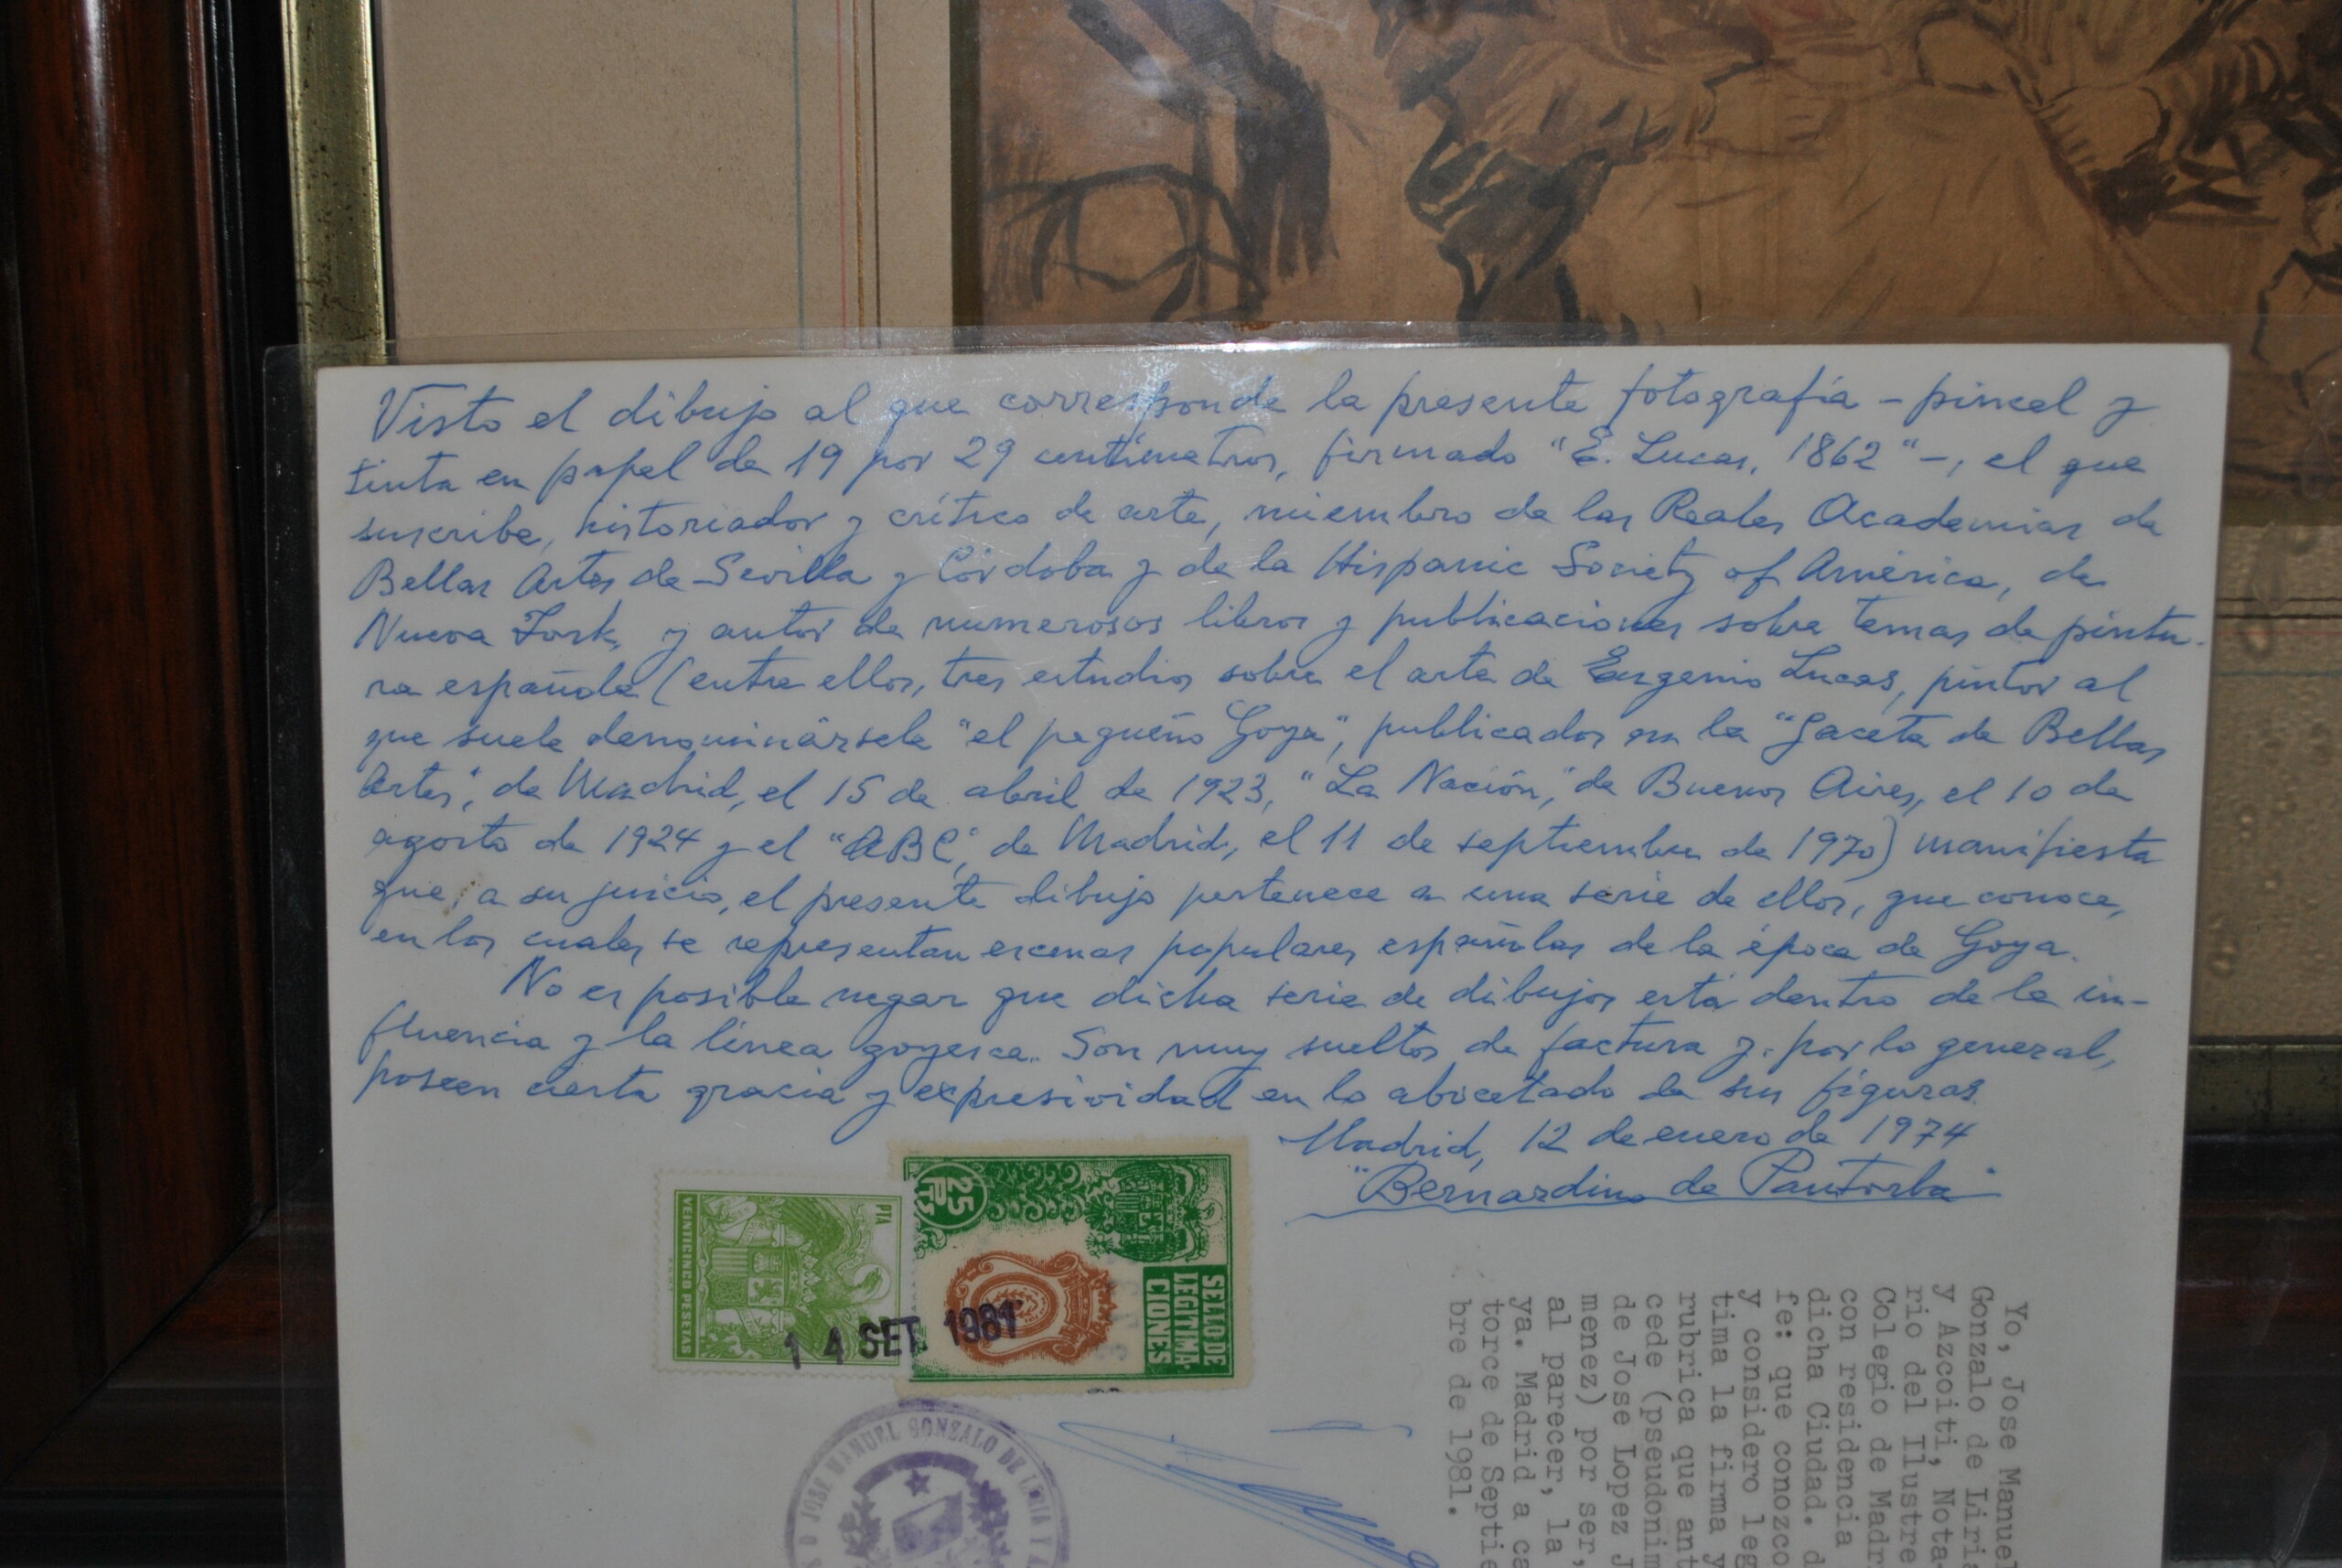 Visto el dibujo al que corresponde la presente fotografía - pincel y
tinta en papel de 19 por 29 centímetros, firmado "E. Lucas, 1862" -, el que
suscribe, historiador y crítico de arte, miembro de las Reales Academias de
Bellas Artes de Sevilla y Córdoba y de la Hispanic Society of América, de
Nueva York, y autor de numerosos libros y publicaciones sobre temas de pintu-
ra española (entre ellos, tres estudios sobre el arte de Eugenio Lucas, pintor al
que suele denominársele "el pequeño Goya", publicados en la "Gaceta de Bellas
Artes", de Madrid, el 15 de abril de 1923, "La Nación", de Buenos Aires, el 10 de
agosto de 1924 y el "ABC", de Madrid, el 11 de septiembre de 1970) manifiesta
que, a su juicio, el presente dibujo pertenece a una serie de ellos, que conoce,
en los cuales se representan escenas populares españolas de la época de Goya.
No es posible negar que dicha serie de dibujos está dentro de la in-
fluencia y la línea goyesca. Son muy sueltos de factura y, por lo general,
poseen cierta gracia y expresividad en lo abocetado de sus figuras.
Madrid, 12 de enero de 1974
"Bernardino de Pantorba"
PTA
VEINTICINCO PESETAS
25 Pts
SELLO DE
LEGITIMA-
CIONES
14 SET. 1981
JOSE MANUEL GONZALO DE LIRIA Y
Yo, Jose Manuel
Gonzalo de Liria
y Azcoiti, Nota-
rio del Ilustre
Colegio de Madri
con residencia
dicha Ciudad. d
fe: que conozco
y considero leg
tima la firma y
rubrica que ant
cede (pseudonim
de Jose Lopez J
menez) por ser,
al parecer, la
ya. Madrid a ca
torce de Septie
bre de 1981.